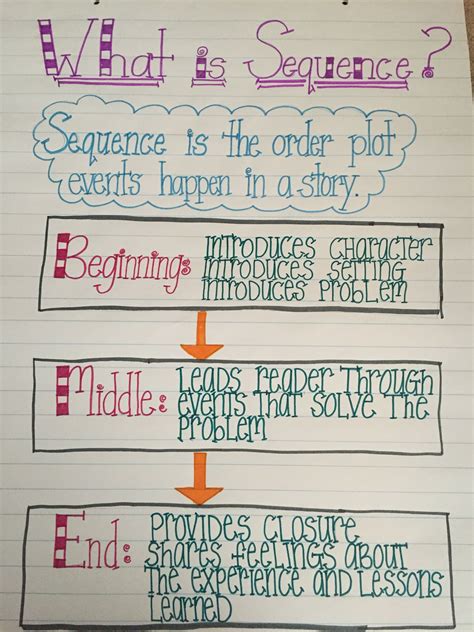 What is Sequence?
Sequence is the order plot
events happen in a story.
Beginning: Introduces Character
Introduces Setting
Introduces Problem
Middle: Leads reader Through
events That solve The
problem
End: Provides closure
shares feelings about
The experience and Lessons
Learned